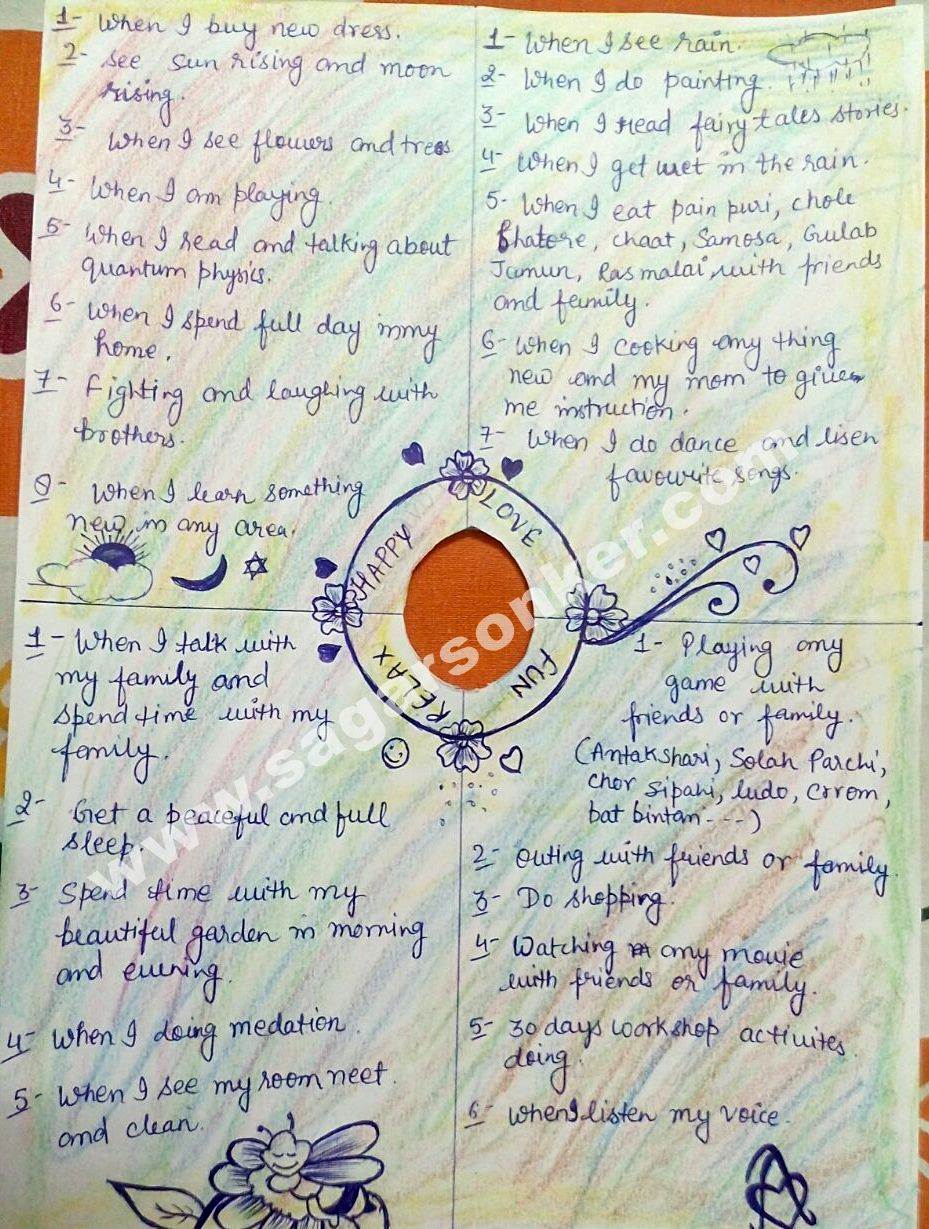 1- When I buy new dress.
2- see sun rising and moon
rising.
3- When I see flowers and trees
4- When I am playing.
5- When I read and talking about
quantum physics.
6- When I spend full day in my
home.
7- Fighting and laughing with
brothers.
8- When I learn something
new in any area.
1- When I see rain.
2- When I do painting.
3- When I read fairy tales stories.
4- When I get wet in the rain.
5- When I eat pain puri, chole
Bhatore, chaat, Samosa, Gulab
Jamun, Rasmalai, with friends
and family.
6- When I cooking any thing
new and my mom to give
me instruction.
7- When I do dance and lisen
favourite songs.
HAPPY
LOVE
RELAX
FUN
1- When I talk with
my family and
spend time with my
family.
2- Get a peaceful and full
sleep.
3- Spend time with my
beautiful garden in morning
and evening.
4- When I doing medation.
5- When I see my room neet
and clean.
1- Playing any
game with
friends or family.
(Antakshari, Solah Parchi,
chor sipahi, ludo, Crrom,
bat bintan---)
2- Outing with friends or family.
3- Do shopping.
4- Watching any movie
with friends or family.
5- 30 days workshop activites
doing.
6- When I listen my voice.
www.sagersonker.com